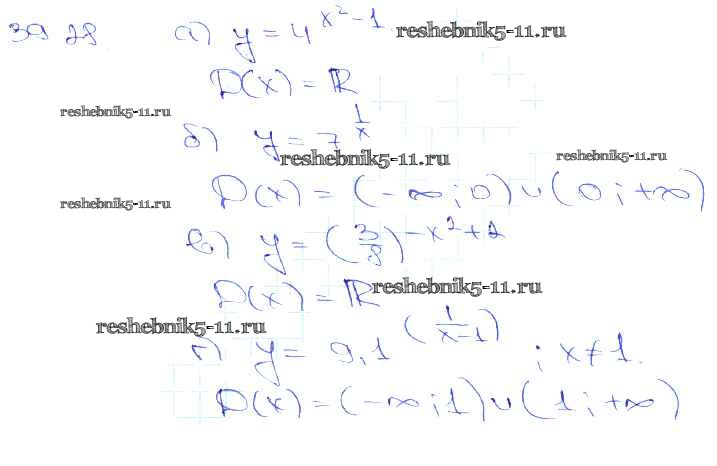 39 28 а) y = 4^(x² - 1) reshebnik5-11.ru
D(x) = ℝ
reshebnik5-11.ru
б) y = 7^(1/x)
reshebnik5-11.ru reshebnik5-11.ru
D(x) = (-∞; 0) ∪ (0; +∞)
reshebnik5-11.ru
в) y = (3/8)^(-x² + 2)
D(x) = ℝ reshebnik5-11.ru
reshebnik5-11.ru
г) y = 9,1^(1/(x-1)) ; x ≠ 1.
D(x) = (-∞; 1) ∪ (1; +∞)